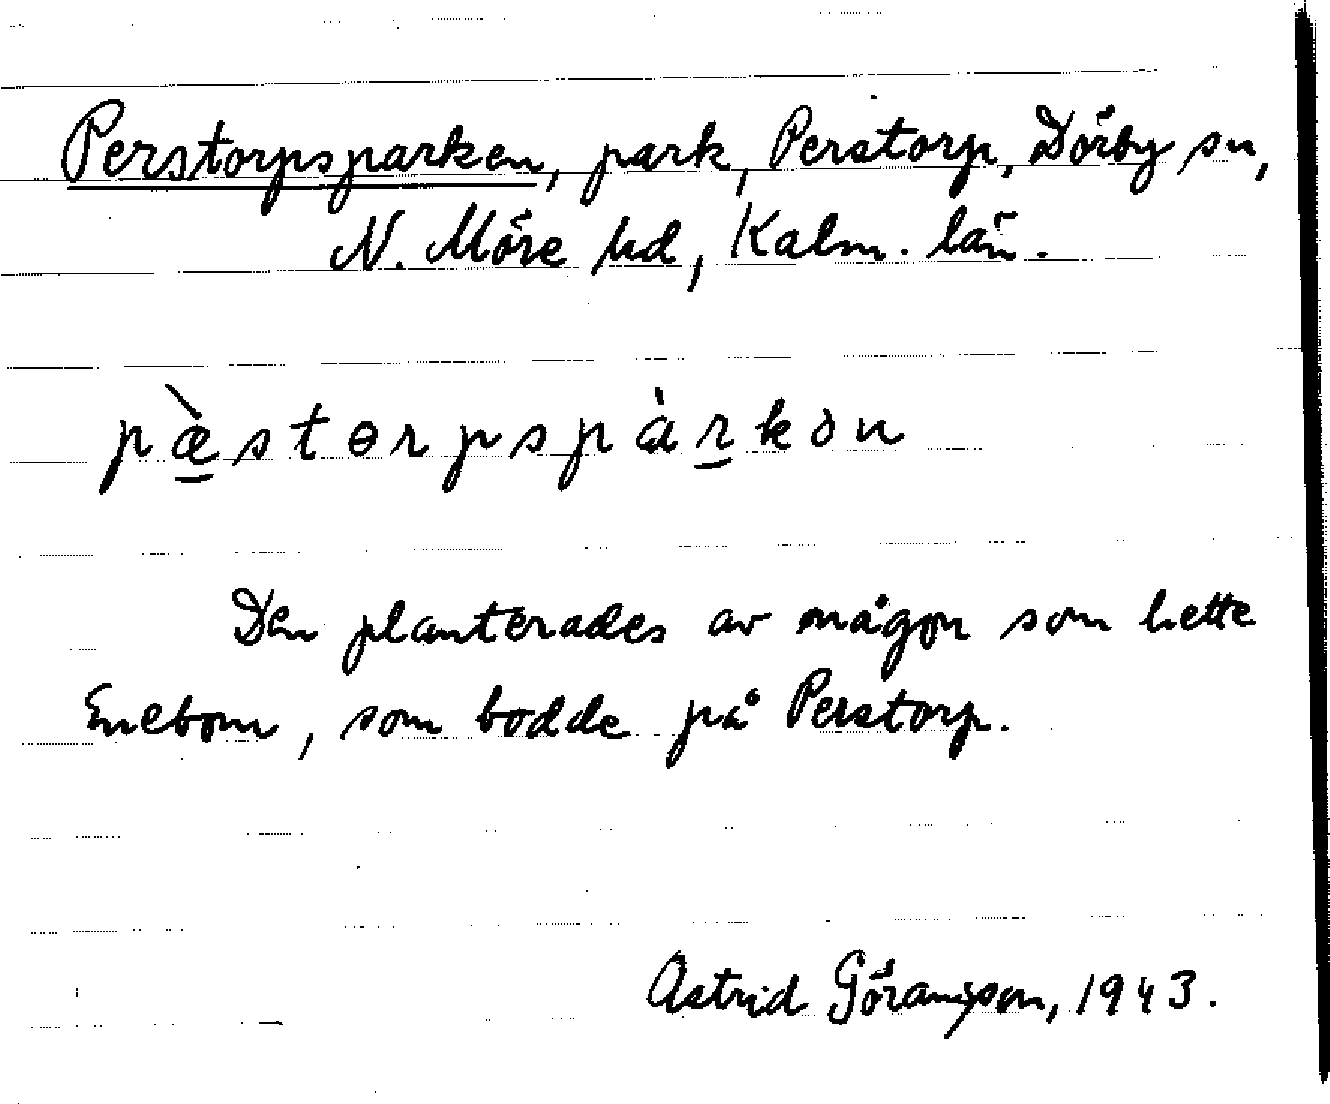 Perstorpsparken, park, Perstorp, Dörby sn,
N. Möre hd, Kalm. län.
pæ̠̀stɵrpspàr̠kən
Den planterades av någon som hette
Enebom, som bodde på Perstorp.
Astrid Göransson, 1943.